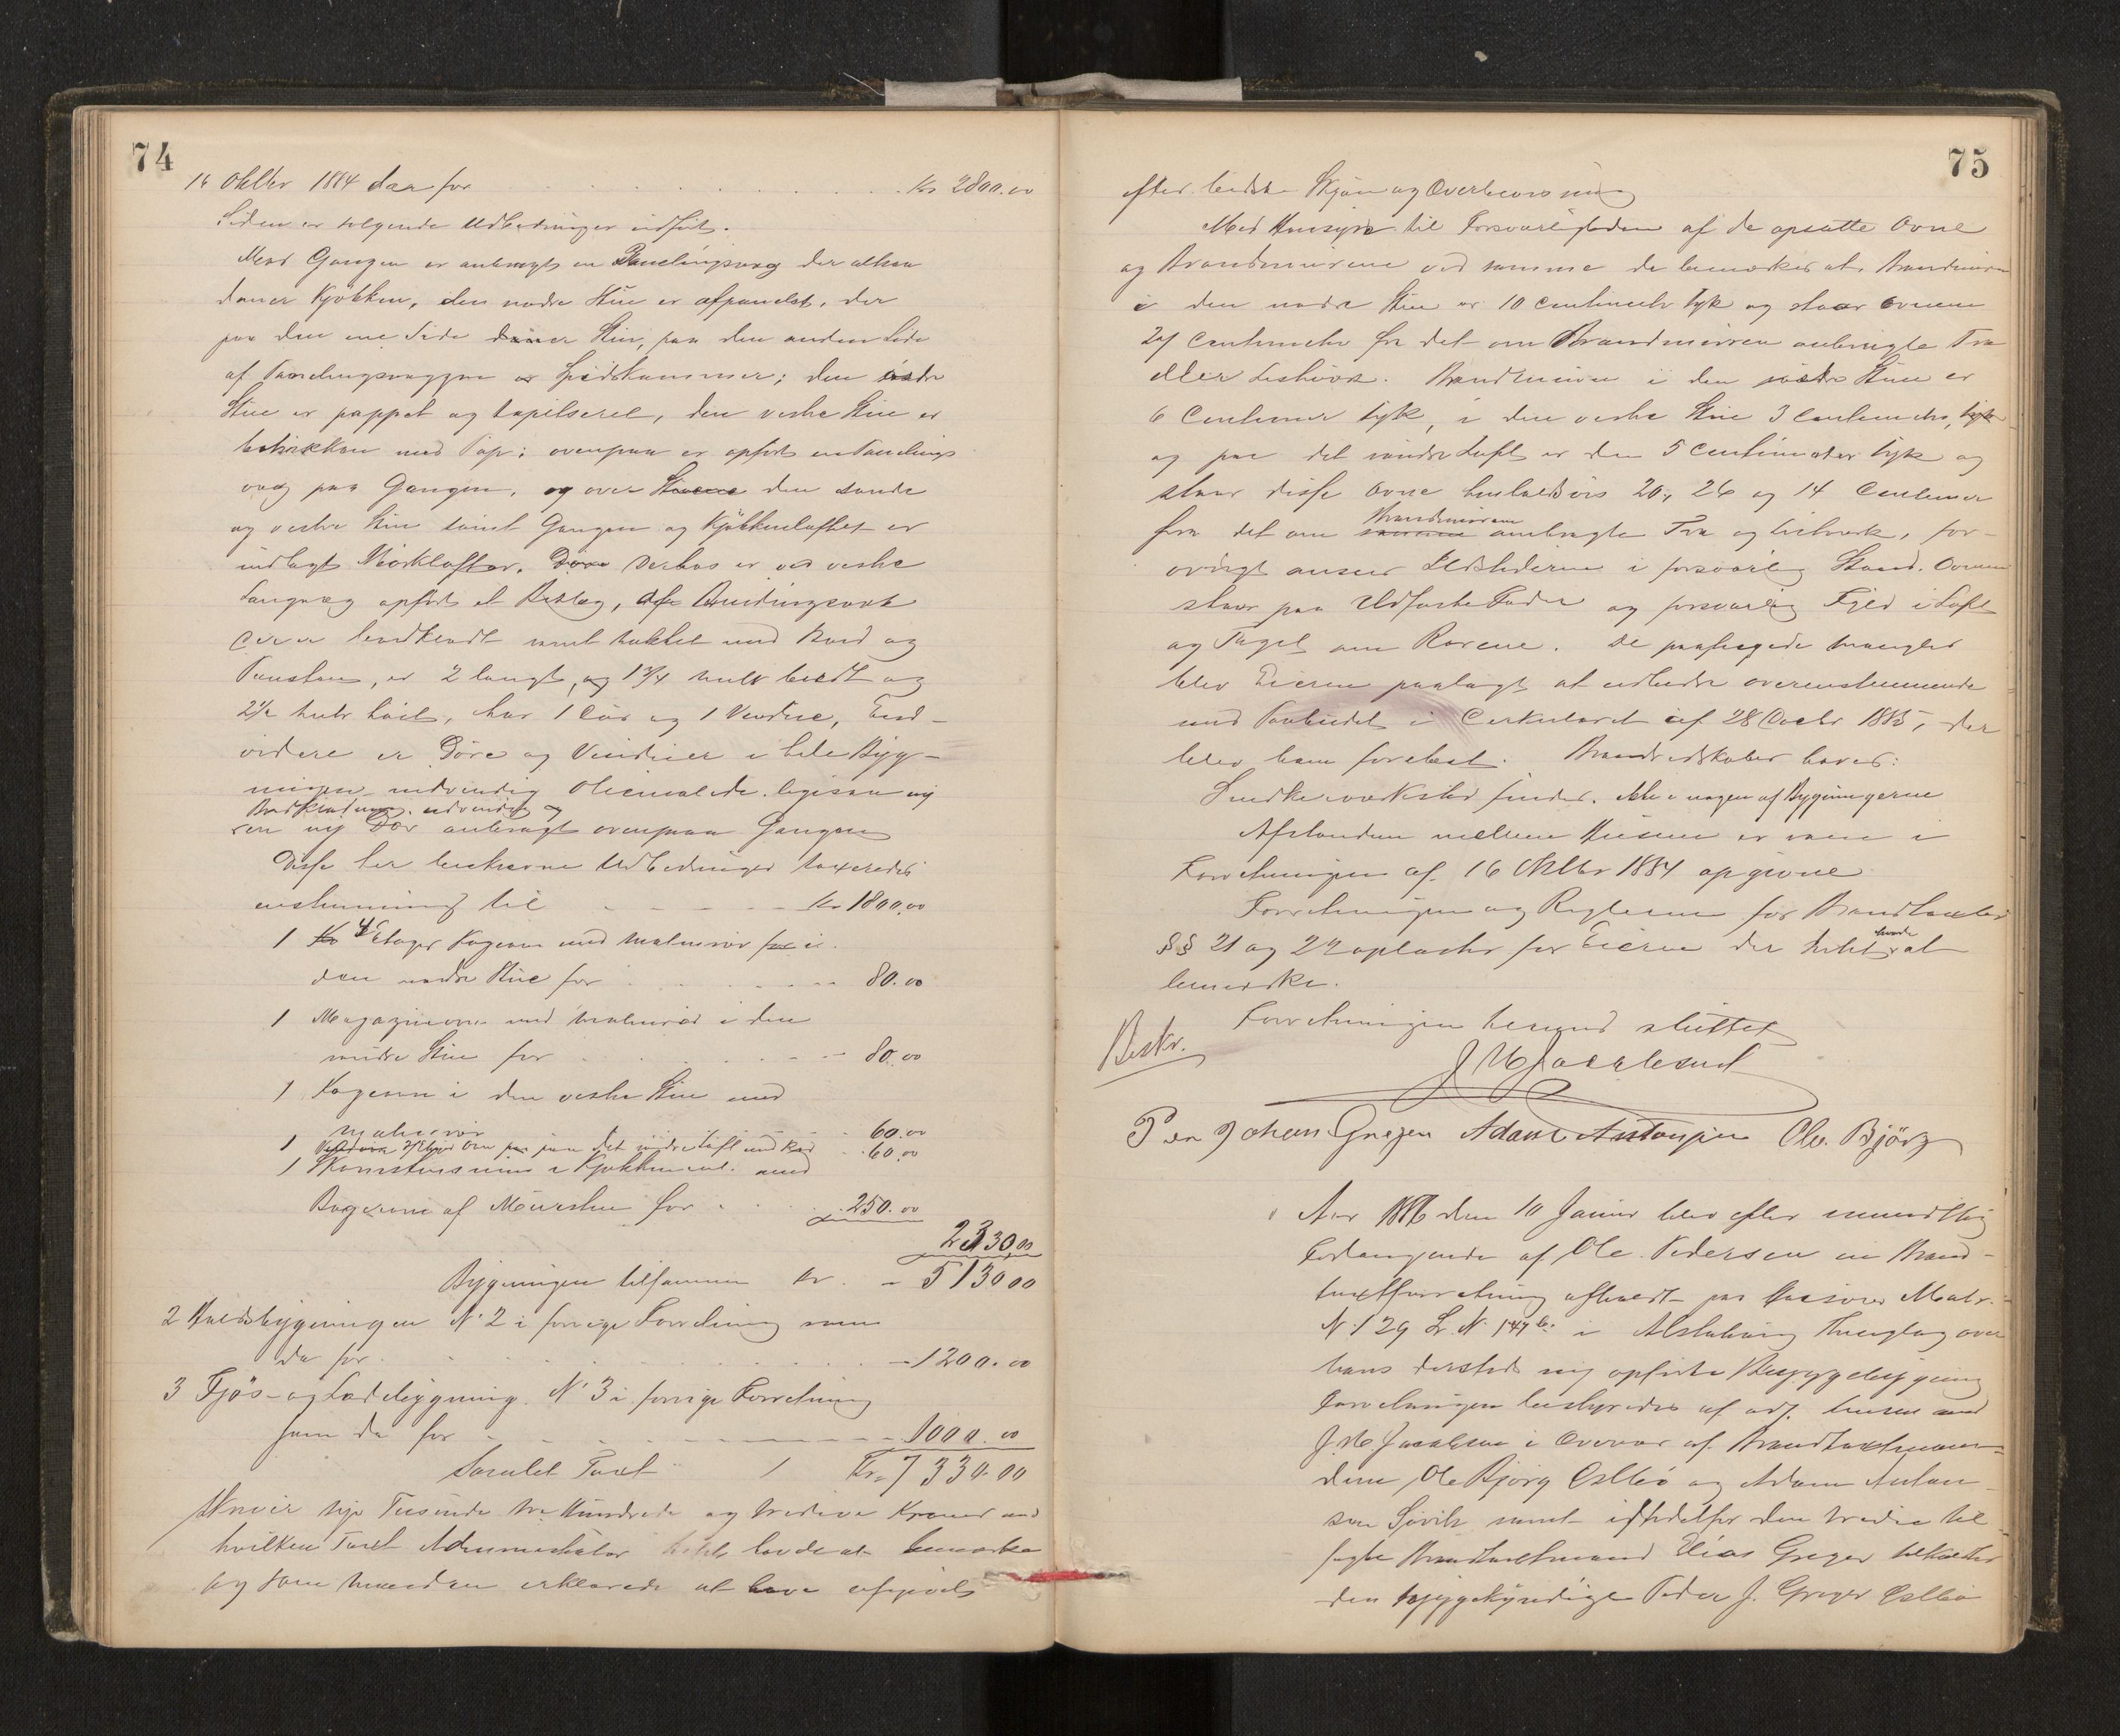 74
16 Oktbr 1884 da for . . . . . . Kr 2800.00
Siden er følgende Udbedringer udført.
Mod Gangen er anbragt en Panelingsvæg der
danner Kjøkken, den nordre Stue er afpanelet, der
paa den ene Side danner Stue, paa den anden Side
af Panelingsvæggen er Spidskammer; den søndre
Stue er pappet og tapitseret, den vestre Stue er
betrukken med Pap; ovenpaa er opført en Panelings
væg paa Gangen, og over Stuene den søndre
og vestre Stue samt Gangen og Kjøkkenloftet er
indlagt Mørkloftor. Døre Derhos er ved vestre
Langvæg opført et Bislag, af Bindingsværk
der er bordklædt samt takket med Bord og
Tagsten, er 2 langt, og 1¾ meter bredt og
2½ meter høit, har 1 Dør og 1 Vindue, End-
videre er Døre og Vinduer i hele Byg-
ningen indvendig oliemalede ligesaa ny
Bordklædning udvendig og
en ny Dør anbragt ovenpaa Gangen
Disse her beskrevne Udbedringer taxeredes
enstemmig til - - - - Kr 1800.00
1 Ko 4 Etages Kogeovn med malmrør for i
den nordre Stue for . . . . 80.00
1 Magazinovn med malmrør i den
søndre Stue for . . . . 80.00
1 Kogeovn i den vestre Stue med
malmrør . . 60.00
1 2 Etages Ovn paa det søndre Loft med Rør . 60.00
1 Skorstensmur i Kjøkkenet med
Bagerovn af Mursten for . . . 250.00
2330,00
Bygningen tilsammen Kr. - 5130 00
2 Stuebygningen N. 2 i forrige Forretning som
da for . . . . . . - 1200.00
3 Fjøs- og Ladebygning N. 3 i forrige Forretning
som da for - - - - - 1000.00
Samlet Taxt Kr. 7330.00
Skriver syv Tusinde tre Hundrede og tredive Kroner mod
hvilken Taxt Administrator intet havde at bemærke
og som Mændene erklærede at have afgivet
75
efter bedste Skjøn og Overbevisning
Med Hensyn til Forsvarligheden af de opsatte Ovne
og Brandmurene ved samme da bemærkes at Brandmuren
i den nordre Stue er 10 Centimeter tyk og staar Ovnene
24 Centimeter fra det om Brandmuren anbragte Træ
eller Listværk. Brandmuren i den søndre Stue er
6 Centimer tyk, i den vestre Stue 3 Centimeter, tyk
og paa det søndre Loft er den 5 Centimeter tyk og
staar disse Ovne henholdsvis 20, 26 og 14 Centimer
Brandmurene
fra det om samme anbragte Træ og Listværk, for-
øvrigt ansees Ildstederne i forsvarlig Stand. Ovnene
staar paa Ildfaste Fødder og forsvarlig Fjed i Loft
og Taget om Rørene. De paaklagede Mangler
blev Eieren paalagt at udbedre overensstemmende
med Paabudet i Cirkulæret af 28 Decbr 1885, der
blev ham forelæst. Brandredskaber haves:
Snedkerværksted findes ikke i nogen af Bygningerne
Afstanden mellem Husene er som i
Forretningen af 16 Oktbr 1884 opgivne
Forretningen og Reglerne for Brandtaxter
§§ 21 og 22 oplæstes for Eieren der intet havde at
bemærke.
Forretningen hermed sluttet
Beskr.
J M Jacobsend
Peder Johan Greger Adam Antonsen Ole Bjørg
Aar 1886 den 10 Januar blev efter mundtlig
Forlangende af Ole Pedersen en Brand-
taxtforretning afholdt paa Matr.
N. 129 Lr. N. 147 b. i Alstahaug Thinglag over
hans dersteds ny opførte Vaaningsbygning
Forretningen bestyredes af
J. M. Jacobsen i Overvær af Brandtaxtmæn-
dene Ole Bjørg og Adam Anton-
sen Søvik samt istedetfor den tredie til-
sagte Brandtaxtmand Elias Greger tilkaldtes
den bygningskyndige Peder J. Greger